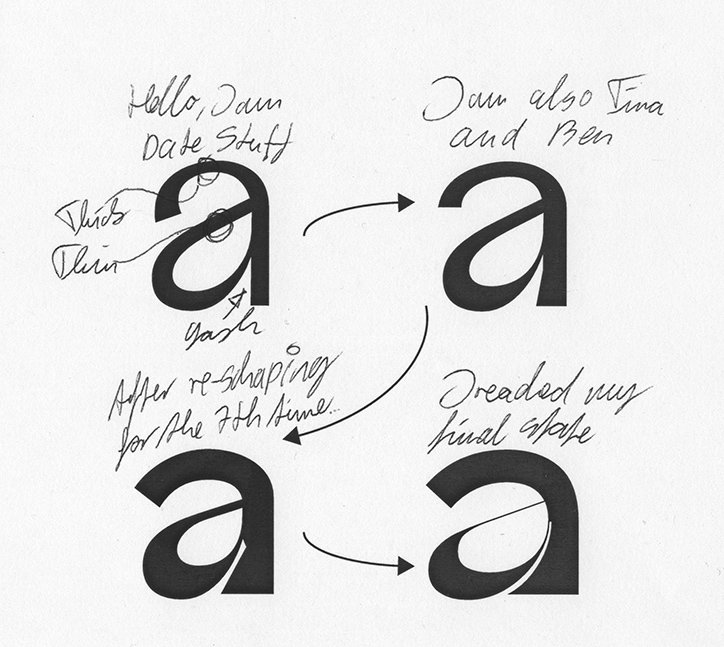 Hello, I am
Date Stuff
a
Thick
Thin
gash
I am also Tina
and Ben
a
After re-shaping
for the 7th time..
a
I reached my
final state
a